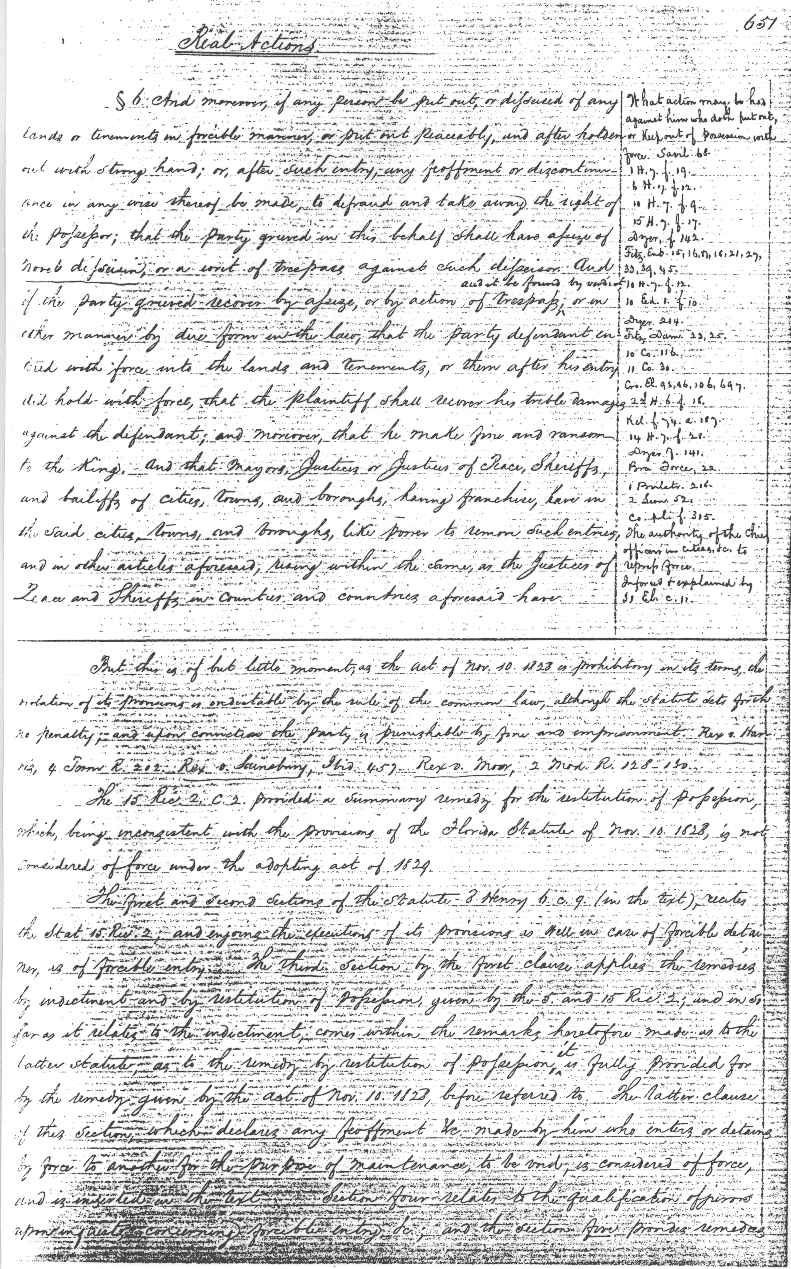 651
Real Actions
§ 6. And moreover, if any person be put out, or disseised of any
lands or tenements in forcible manner, or put out peaceably, and after holden
out with strong hand; or, after such entry, any feoffment or discontinu-
ance in any wise thereof be made, to defraud and take away the right of
the possessor; that the party grieved in this behalf shall have assize of
novel disseisin, or a writ of trespass against such disseisor. And
and it be found by verdict
if the party grieved recover by assize, or by action of trespass, or in
other manner by due form in the law, that the party defendant en-
tred with force into the lands and tenements, or them after his entry
did hold with force, that the plaintiff shall recover his treble damages
against the defendant; and moreover, that he make fine and ransom
to the King. And that Mayors, Justices or Justices of Peace, Sheriffs,
and bailiffs of cities, towns, and boroughs, having franchise, have in
the said cities, towns, and boroughs, like power to remove such entries,
and in other articles aforesaid, rising within the same, as the Justices of
Peace and Sheriffs in counties and countries aforesaid have.
What action may be had
against him who doth put out,
or keep out of possession with
force. Savil 68.
1 H. 7. f. 19.
6 H. 7. f. 12.
10 H. 7. f. 9.
15 H. 7. f. 17.
Dyer, f. 142.
33, 39, 45.
10 H. 7. f. 12.
10 Ed. 1. f. 10.
Dyer 214.
Fitz. Dam. 22, 25.
10 Co. 116.
11 Co. 30.
Cro. El. 93, 96, 106, 697.
22 H. 6. f. 18.
Kel. f. 74. a. 187.
14 H. 7. f. 28.
Dyer f. 141.
Bro. Force, 22.
1 Brulst. 216.
2 Leon 52.
Co. pli. f. 315.
The authority of the Chief
officers in cities, &c. to
repress force.
Inforced & explained by
31 Eli. c. 11.
But this is of but little moment, as the act of Nov. 10. 1828 is prohibitory in its terms, the
violation of its provisions is indictable by the rule of the common law, although the statute sets forth
no penalty, and upon conviction the party is punishable by fine and imprisonment. Rex v. Har-
ris, 4 Term R. 202. Rex v. Sainsbury, Ibid. 457. Rex v. Moor, 2 Mod. R. 128-130.
The 15 Ric. 2. C. 2. provided a summary remedy for the restitution of possession,
which, being inconsistent with the provisions of the Florida Statute of Nov. 10. 1828, is not
considered of force under the adopting act of 1829.
The first and second sections of the Statute 8 Henry 6. c. 9. (in the text), recites
the Stat 15 Ric. 2, and enjoins the execution of its provisions as well in case of forcible detai-
ner, as of forcible entry. The third section by the first clause applies the remedies
by indictment and by restitution of possession, given by the 5 and 15 Ric. 2; and in so
far as it relates to the indictment, comes within the remarks heretofore made as to the
latter statute; as to the remedy by restitution of possession, it is fully provided for
by the remedy given by the act of Nov. 10. 1828, before referred to. The latter clause
of this section, which declares any feoffment &c. made by him who enters or detains
by force to another for the purpose of maintenance, to be void, is considered of force,
and is inserted in the text. Section four relates to the qualification of jurors
upon inquests concerning forcible entry, &c.; and the section five provides remedies